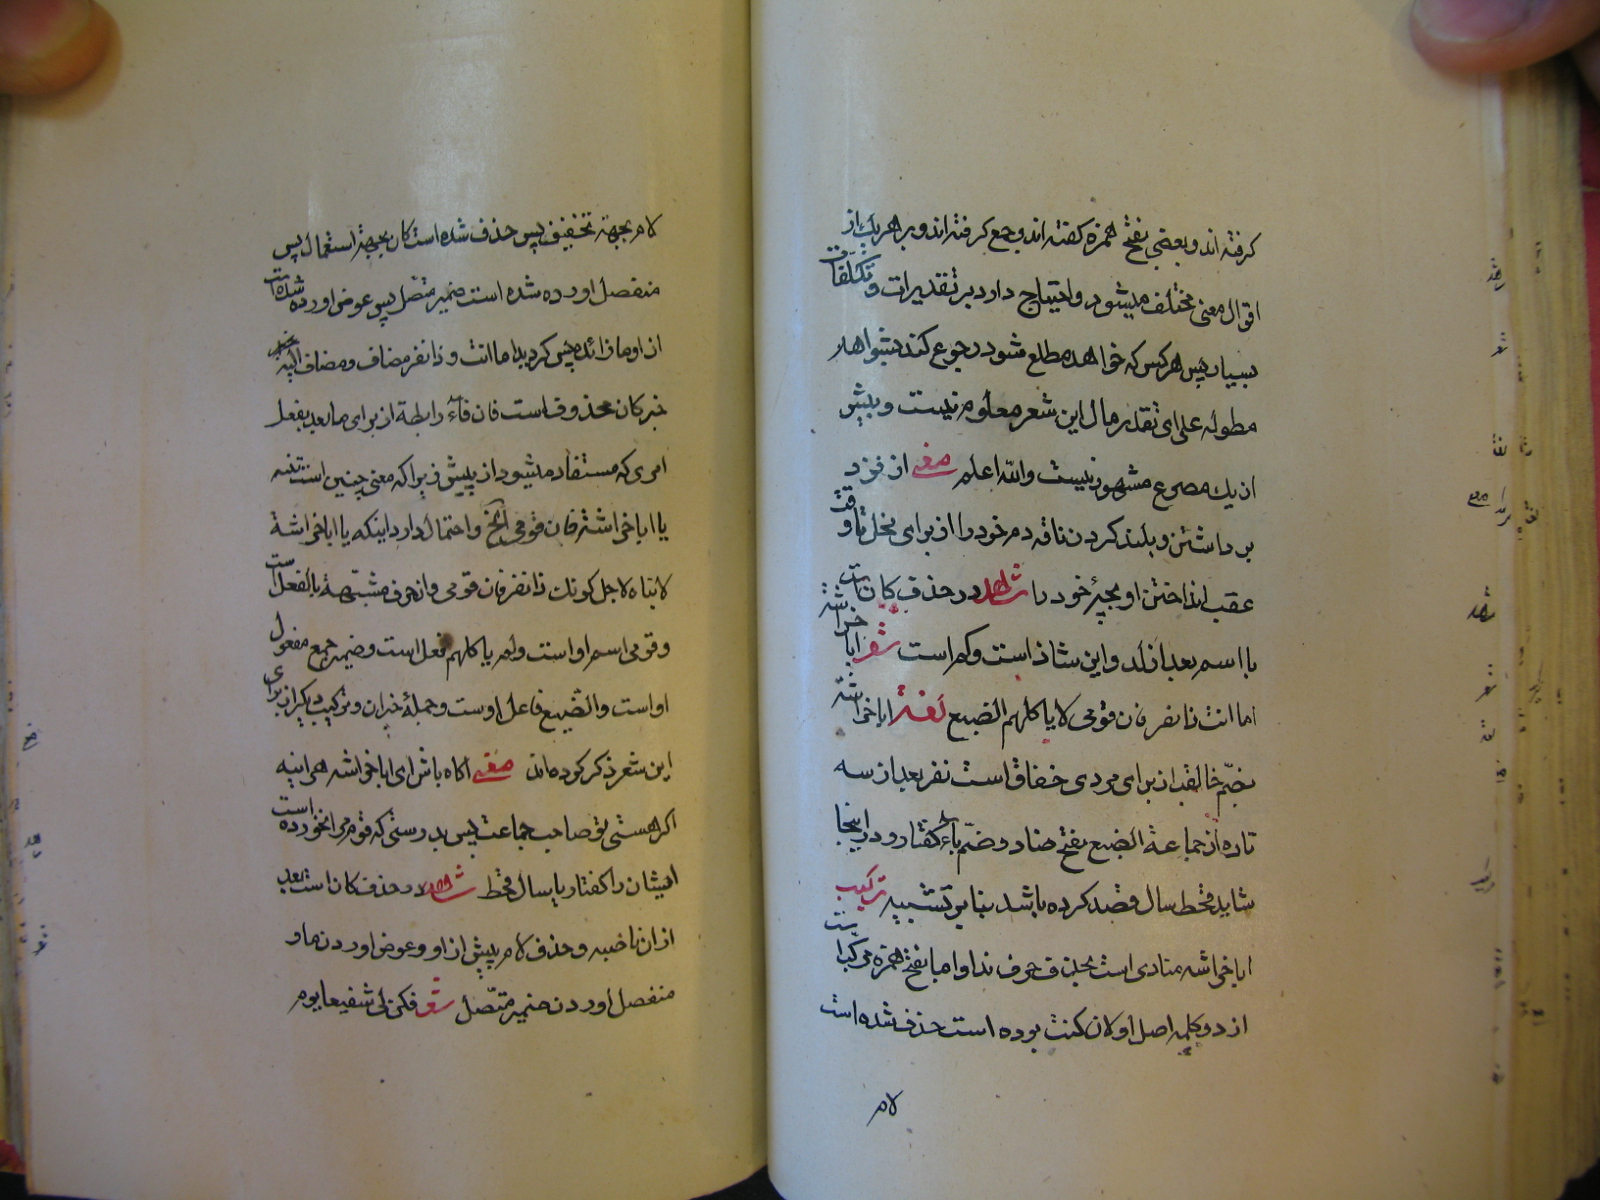 کرفته اند و بعضی بفتح همزه کفته اند و جمع کرفته اند و بر هر یک از
اقوال معنی مختلف میشود و احتیاج دارد بر تقدیرات و تکلفات
بسیار پس هر کس که خواهد مطلع شود رجوع کند بشواهد
مطوله علی ای تقدیر مال این شعر معلوم نیست و بیش
از یک مصرع مشهور نیست والله اعلم معنی از
برداشتن و بلند کردن ناقه دم خود را از برای نخل تا وقت
عقب انداختن او بچهٔ خود را شاهد در حذف کان است
با اسم بعد از لد و این شاذ است و کم است شعر ابا خراشة
اما انت ذا نفر فان قومی لا یاکلهم الضبع لغة ابا خراشه
بضم خا لقب از برای مردی خفاف است نفر بعد از سه
تا ده از جماعة الضبع بفتح ضاد و ضم باء کفتار و در اینجا
شاید قحط سال قصد کرده باشد بنا بر تشبیه ترکیب
ابا خراشه منادی است بحذف حرف ندا و اما بفتح همزه مرکب است
از دو کلمه اصل او لان کنت بوده است حذف شده است
لام
لام بجهة تخفیف پس حذف شده است کان بجهة استعمال پس
منفصل اورده شده است ضمیر متصل پس عوض اورده شده است
از او ما زائده پس کردید اما انت و ذا نفر مضاف و مضاف الیه خبر
خبر کان محذوف است فان فآء رابطة از برای مابعد بفعل
امری که مستفاد میشود از پیش زیرا که معنی چنین است تنبه
یا ابا خراشة فان قومی الخ و احتمال دارد اینکه یا ابا خراشة
لاجل کونک ذا نفر فان قومی و ان حرف مشبهة بالفعل است
و قومی اسم او است و لم یاکلهم فعل است و ضمیر جمع مفعول
او است و الضبع فاعل اوست و جملهٔ خبر ان و ترکیب دیکر از برای
این شعر ذکر کرده اند معنی اکاه باش ای ابا خراشه هر اینه
اکر هستی تو صاحب جماعت پس بدرستی که قوم من نخورده است
ایشان را کفتار یا سال قحط شاهد در حذف کان است بعد
از ان ناصبه و حذف لام پیش از او و عوض اوردن ما و
منفصل اوردن ضمیر متصل شعر فکن لی شفیعا یوم